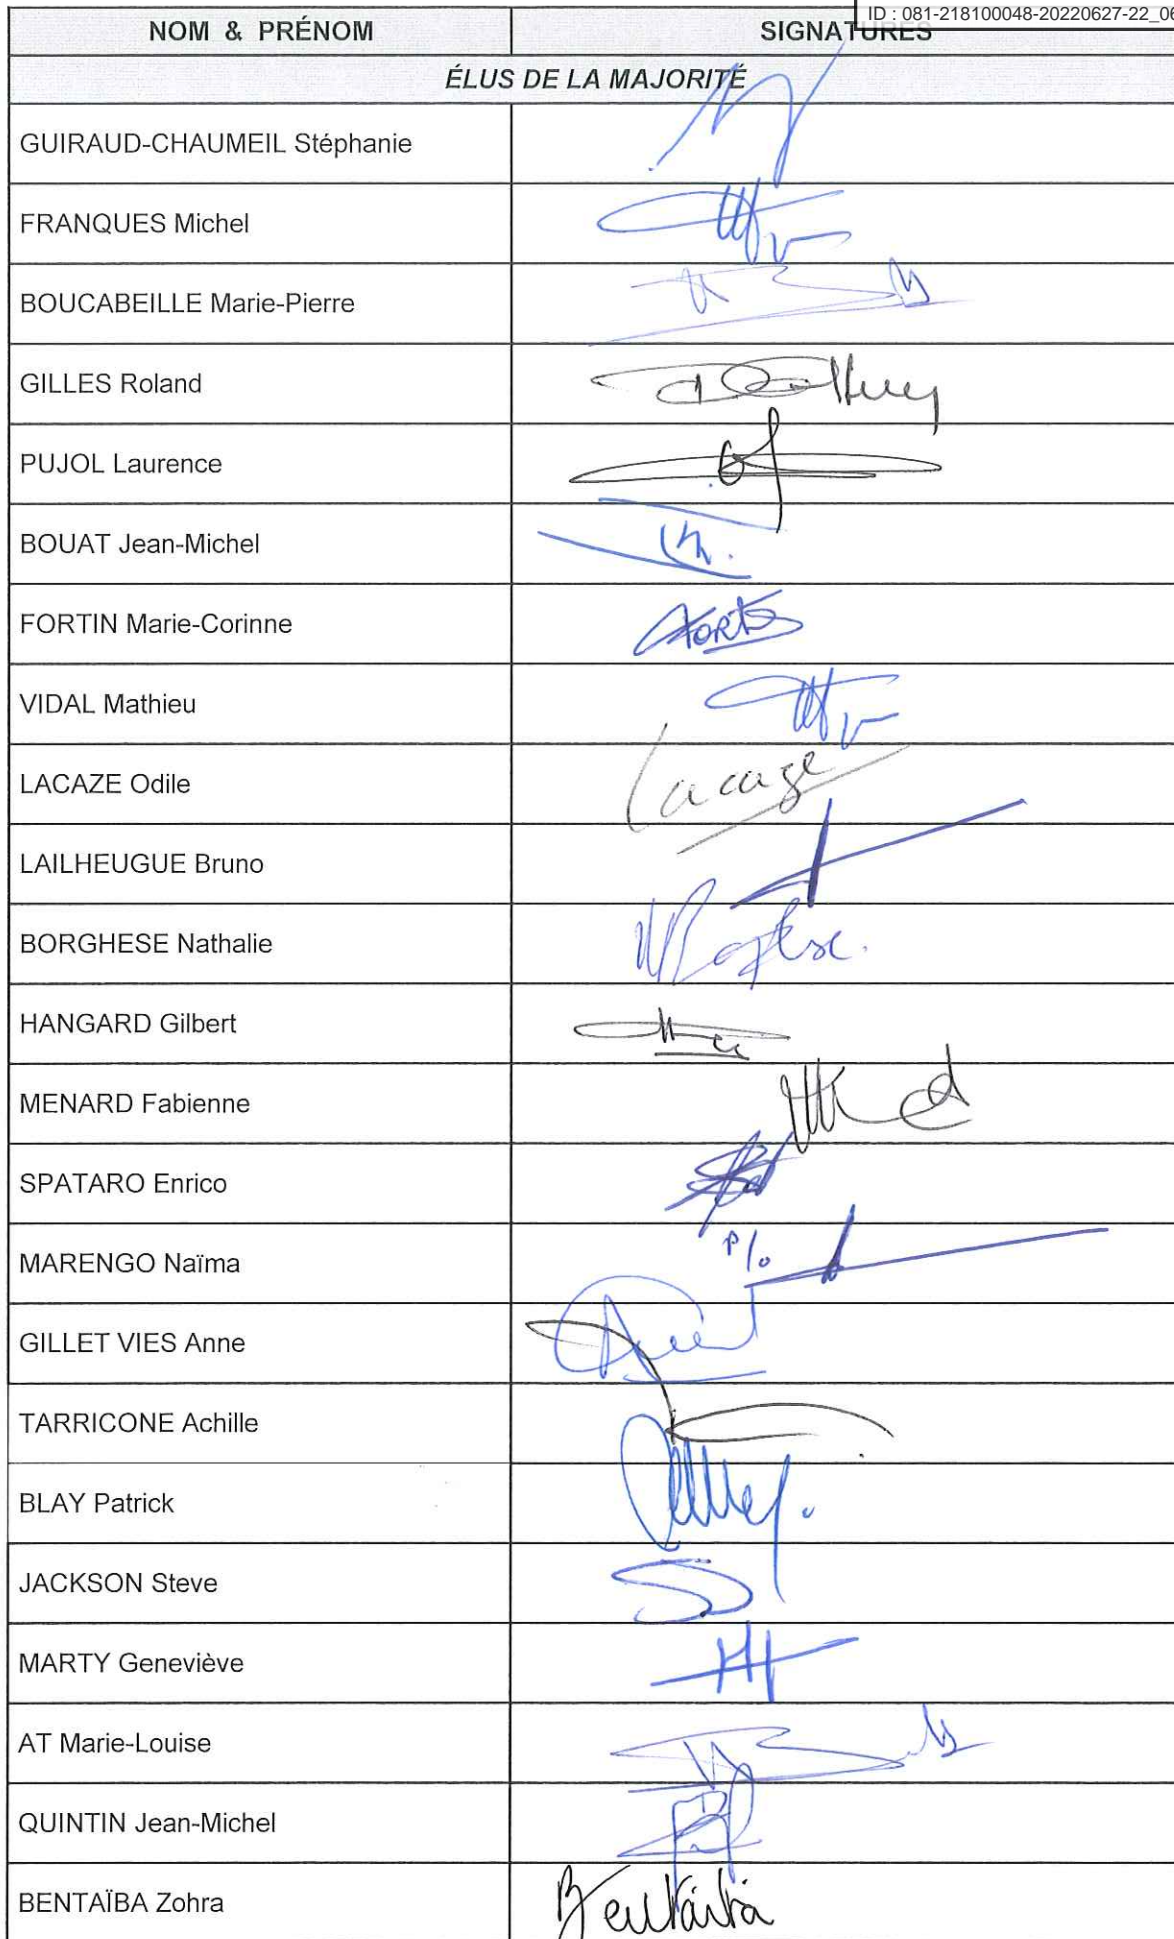 ID : 081-218100048-20220627-22_06
NOM & PRÉNOM SIGNATURES
ÉLUS DE LA MAJORITÉ
GUIRAUD-CHAUMEIL Stéphanie
FRANQUES Michel
BOUCABEILLE Marie-Pierre
GILLES Roland
PUJOL Laurence
BOUAT Jean-Michel
FORTIN Marie-Corinne
VIDAL Mathieu
LACAZE Odile Lacaze
LAILHEUGUE Bruno
BORGHESE Nathalie
HANGARD Gilbert
MENARD Fabienne
SPATARO Enrico
MARENGO Naïma P/o
GILLET VIES Anne
TARRICONE Achille
BLAY Patrick
JACKSON Steve
MARTY Geneviève
AT Marie-Louise
QUINTIN Jean-Michel
BENTAÏBA Zohra Bentaïba